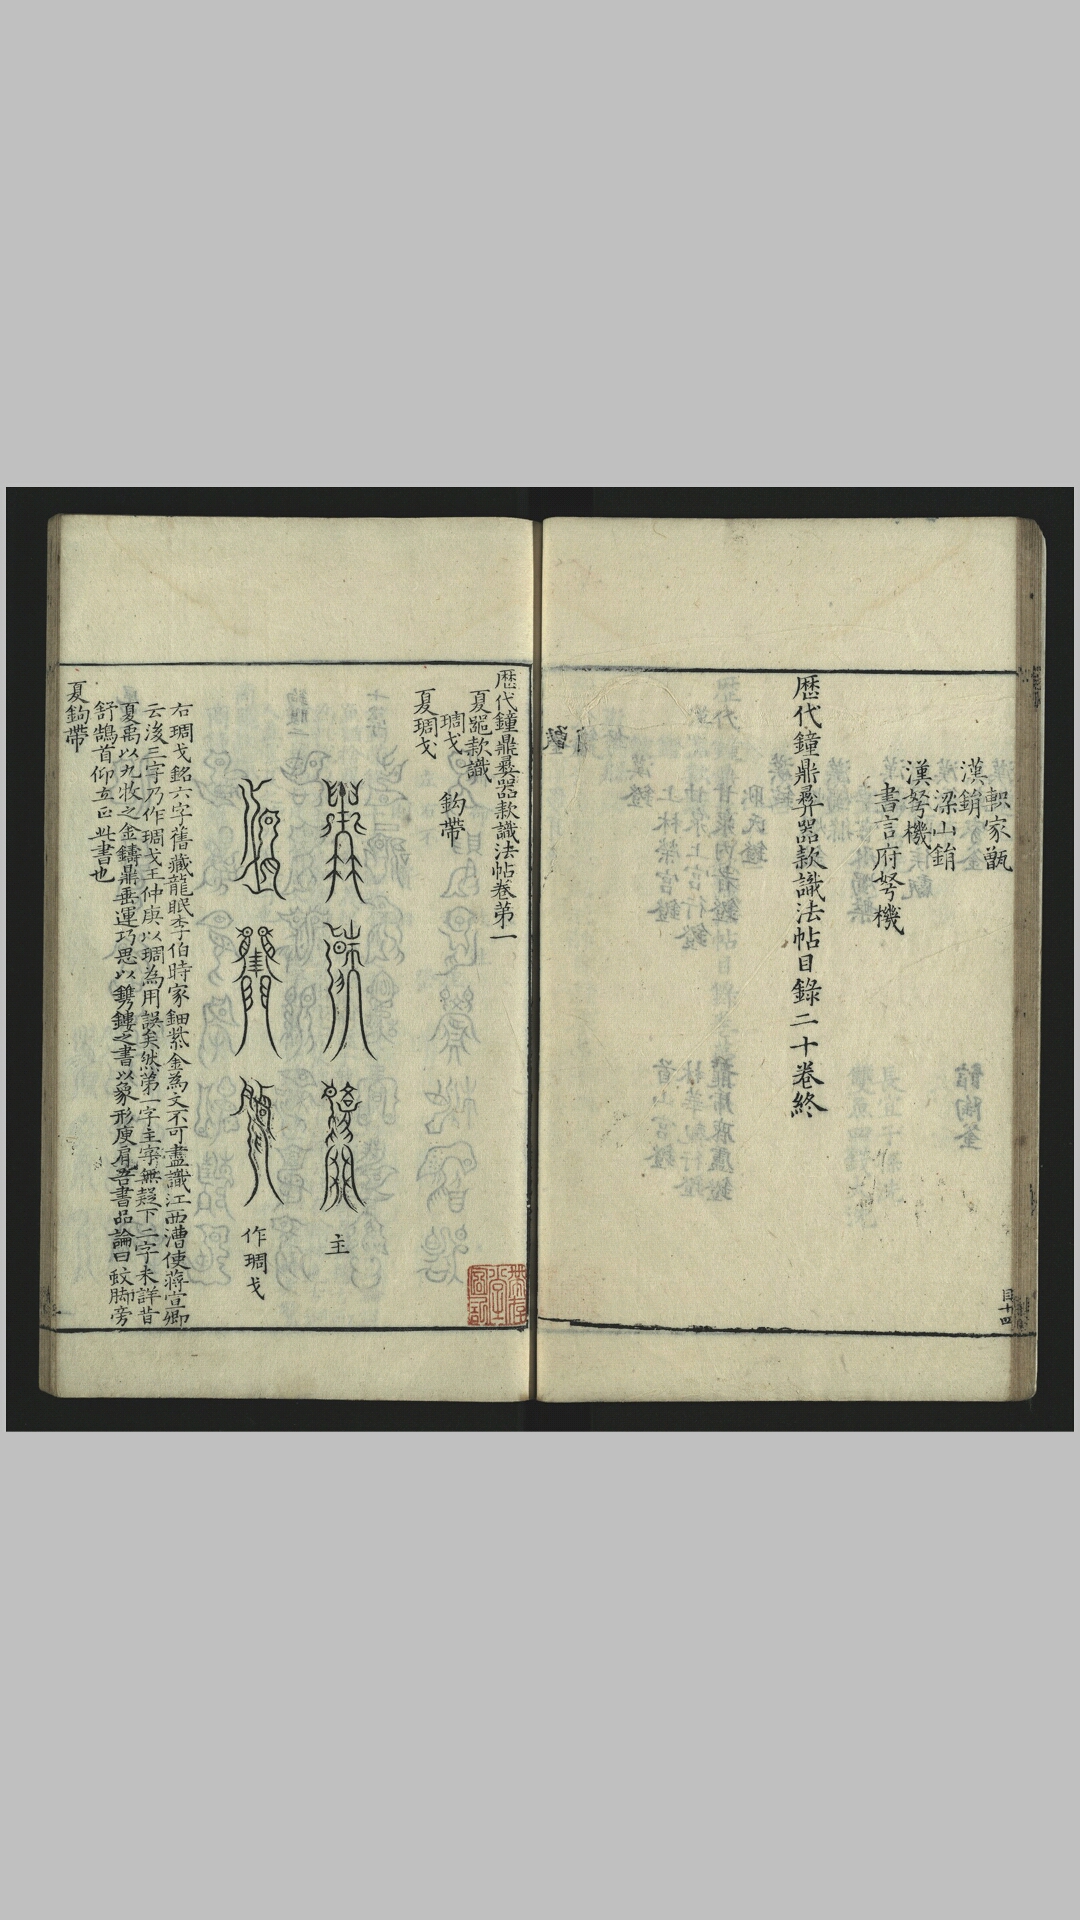 軹家甑
漢鋗
梁山鋗
漢弩機
書言府弩機
歷代鐘鼎彞器款識法帖目錄二十卷終
目十四
歷代鐘鼎彞器款識法帖卷第一
夏器款識
琱戈 鈎帶
夏琱戈
主
作琱戈
右琱戈銘六字舊藏龍眠李伯時家鈿紫金為文不可盡識江西漕使蔣宣卿
云後三字乃作琱戈王仲庚以琱為用誤矣然第一字主字無疑下二字未詳昔
夏禹以九牧之金鑄鼎垂運巧思以鐫鏤之書以象形庾肩吾書品論曰蚊脚旁
舒鵠首仰立正此書也
夏鈎帶